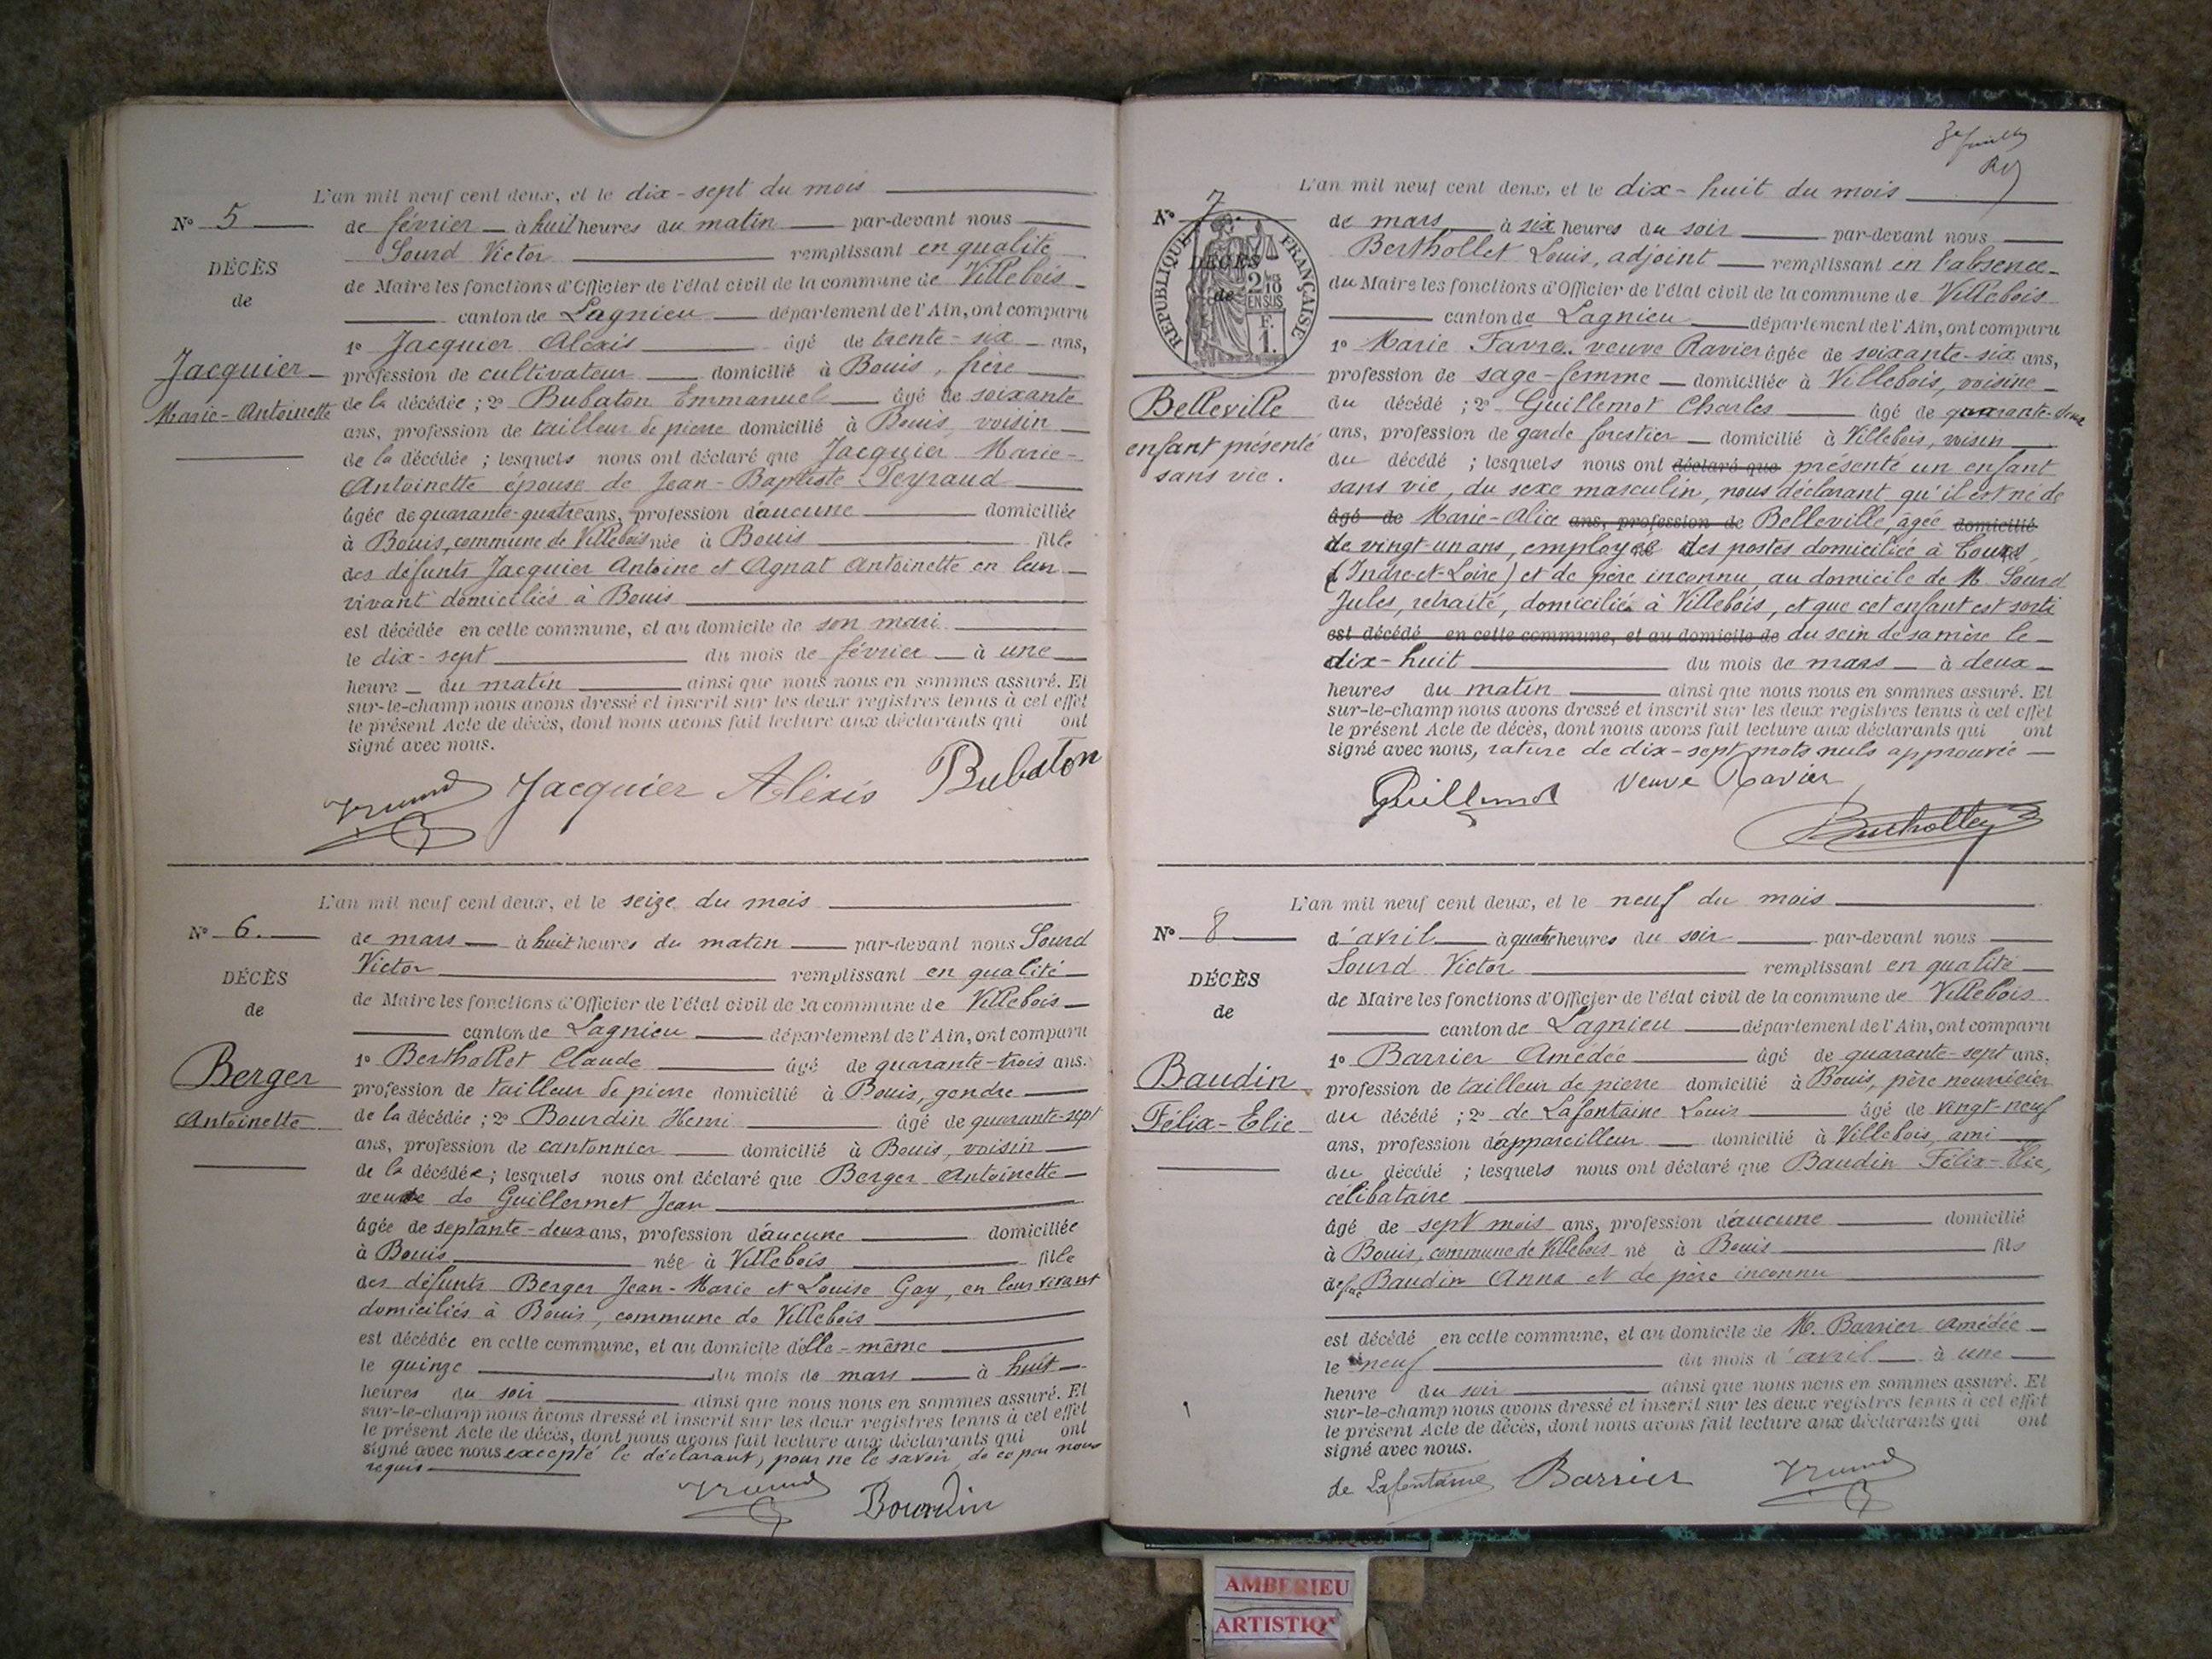 L'an mil neuf cent deux, et le dix-sept du mois
N° 5
de février à huit heures du matin par-devant nous
Sourd Victor remplissant en qualité
DÉCÈS
de Maire les fonctions d'Officier de l'état civil de la commune de Villebois
de
canton de Lagnieu département de l'Ain, ont comparu
1° Jacquier Alexis âgé de trente-six ans,
Jacquier
profession de cultivateur domicilié à Bouis, frère
Marie-Antoinette
de la décédée ; 2° Bubaton Emmanuel âgé de soixante
ans, profession de tailleur de pierre domicilié à Bouis, voisin
de la décédée ; lesquels nous ont déclaré que Jacquier Marie-
Antoinette épouse de Jean-Baptiste Peyraud
âgée de quarante-quatre ans, profession d'aucune domiciliée
à Bouis, commune de Villebois née à Bouis fille
des défunts Jacquier Antoine et Agnat Antoinette en leur
vivant domiciliés à Bouis
est décédée en cette commune, et au domicile de son mari
le dix-sept du mois de février à une
heure du matin ainsi que nous nous en sommes assuré. Et
sur-le-champ nous avons dressé et inscrit sur les deux registres tenus à cet effet
le présent Acte de décès, dont nous avons fait lecture aux déclarants qui ont
signé avec nous.
Jacquier Aléxis Bubaton
L'an mil neuf cent deux, et le seize du mois
N° 6.
de mars à huit heures du matin par-devant nous Sourd
Victor remplissant en qualité
DÉCÈS
de Maire les fonctions d'Officier de l'état civil de la commune de Villebois
de
canton de Lagnieu département de l'Ain, ont comparu
1° Berthollet Claude âgé de quarante-trois ans.
Berger
profession de tailleur de pierre domicilié à Bouis, gendre
Antoinette
de la décédée ; 2° Bourdin Henri âgé de quarante-sept
ans, profession de cantonnier domicilié à Bouis, voisin
de la décédée ; lesquels nous ont déclaré que Berger Antoinette
veuve de Guillermet Jean
âgée de septante-deux ans, profession d'aucune domiciliée
à Bouis née à Villebois fille
des défunts Berger Jean-Marie et Louise Gay, en leur vivant
domiciliés à Bouis, commune de Villebois
est décédée en cette commune, et au domicile d'elle-même
le quinze du mois de mars à huit
heures du soir ainsi que nous nous en sommes assuré. Et
sur-le-champ nous avons dressé et inscrit sur les deux registres tenus à cet effet
le présent Acte de décès, dont nous avons fait lecture aux déclarants qui ont
signé avec nous excepté le déclarant, pour ne le savoir, de ce par nous
requis
Bourdin
L'an mil neuf cent deux, et le dix-huit du mois
N° 7.
de mars à six heures du soir par-devant nous
Berthollet Louis, adjoint remplissant en l'absence
RÉPUBLIQUE FRANÇAISE
DÉCÈS
de
2/10 EN SUS
F. 1.
du Maire les fonctions d'Officier de l'état civil de la commune de Villebois
canton de Lagnieu département de l'Ain, ont comparu
1° Marie Favre veuve Ravier âgée de soixante-six ans,
profession de sage-femme domiciliée à Villebois, voisine
Belleville
du décédé ; 2° Guillemot Charles âgé de quarante-deux
enfant présenté
ans, profession de garde forestier domicilié à Villebois, voisin
sans vie.
du décédé ; lesquels nous ont déclaré que présenté un enfant
sans vie, du sexe masculin, nous déclarant qu'il est né de
âgé de Marie-Alice ans, profession de Belleville, âgée domicilié
de vingt-un ans, employée des postes domiciliée à Tours
(Indre-et-Loire) et de père inconnu, au domicile de M. Sourd
Jules, retraité, domicilié à Villebois, et que cet enfant est sorti
est décédé en cette commune, et au domicile de du sein de sa mère le
dix-huit du mois de mars à deux
heures du matin ainsi que nous nous en sommes assuré. Et
sur-le-champ nous avons dressé et inscrit sur les deux registres tenus à cet effet
le présent Acte de décès, dont nous avons fait lecture aux déclarants qui ont
signé avec nous, rature de dix-sept mots nuls approuvée
Guillemot Veuve Ravier
Berthollet
L'an mil neuf cent deux, et le neuf du mois
N° 8
d'avril à quatre heures du soir par-devant nous
Sourd Victor remplissant en qualité
DÉCÈS
de Maire les fonctions d'Officier de l'état civil de la commune de Villebois
de
canton de Lagnieu département de l'Ain, ont comparu
1° Barrier Amédée âgé de quarante-sept ans.
Baudin
profession de tailleur de pierre domicilié à Bouis, père nourricier
Félix-Elie
du décédé ; 2° de Lafontaine Louis âgé de vingt-neuf
ans, profession d'appareilleur domicilié à Villebois, ami
du décédé ; lesquels nous ont déclaré que Baudin Félix-Elie,
célibataire
âgé de sept mois ans, profession d'aucune domicilié
à Bouis, commune de Villebois né à Bouis fils
de Baudin Anna et de père inconnu
est décédé en cette commune, et au domicile de M. Barrier Amédée
le neuf du mois d'avril à une
heure du soir ainsi que nous nous en sommes assuré. Et
sur-le-champ nous avons dressé et inscrit sur les deux registres tenus à cet effet
le présent Acte de décès, dont nous avons fait lecture aux déclarants qui ont
signé avec nous.
de Lafontaine Barrier
AMBERIEU
ARTISTIQ